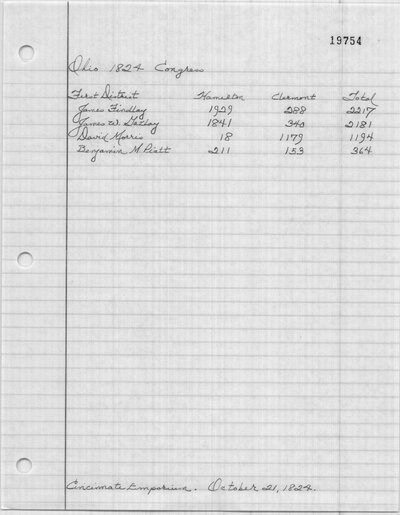 19754
Ohio 1824 Congress
First District Hamilton Clermont Total
James Findlay 1929 288 2217
James W. Gazlay 1841 340 2181
David Morris 18 1179 1194
Benjamin M Piatt 211 153 364
Cincinnati Emporium. October 21, 1824.